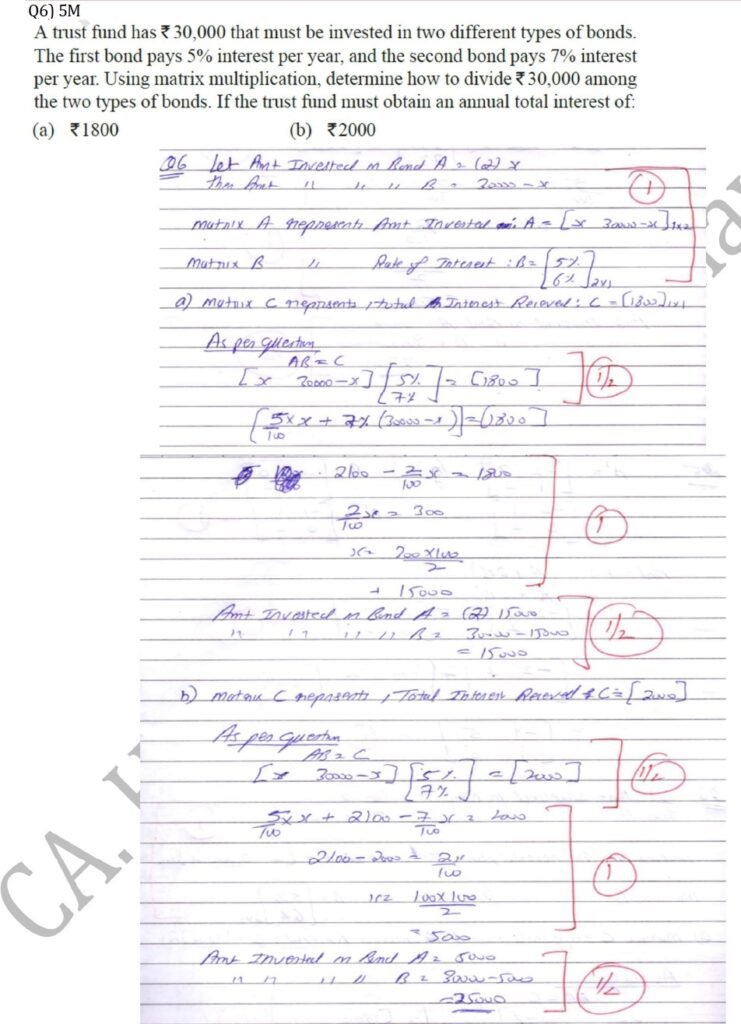 Q6) 5M
A trust fund has ₹ 30,000 that must be invested in two different types of bonds.
The first bond pays 5% interest per year, and the second bond pays 7% interest
per year. Using matrix multiplication, determine how to divide ₹ 30,000 among
the two types of bonds. If the trust fund must obtain an annual total interest of:
(a) ₹1800 (b) ₹2000
Q6 Let Amt Invested in Bond A = (₹) x
then Amt " " " B = 30000 - x
(1)
Matrix A represents Amt Invested : A = [x 30000-x]1x2
Matrix B " Rate of Interest : B = [5% 6%]2x1
a) Matrix C represents, total Interest Received : C = [1800]1x1
As per Question
AB = C
[x 30000-x] [5% 7%] = [1800]
(1/2)
[5/100 x x + 7% (30000-x)] = [1800]
2100 - 2/100 x = 1800
2/100 x = 300
(1)
x = 300x100/2
= 15000
Amt Invested in Bond A = (₹) 15000
" " " " B = 30000 - 15000
(1/2)
= 15000
b) Matrix C represents, Total Interest Received C = [2000]
As per Question
AB = C
[x 30000-x] [5% 7%] = [2000]
(1/2)
5/100 x x + 2100 - 7/100 x = 2000
2100 - 2000 = 2x/100
(1)
x = 100x100/2
= 5000
Amt Invested in Bond A = 5000
" " " " B = 30000-5000
(1/2)
= 25000
CA.